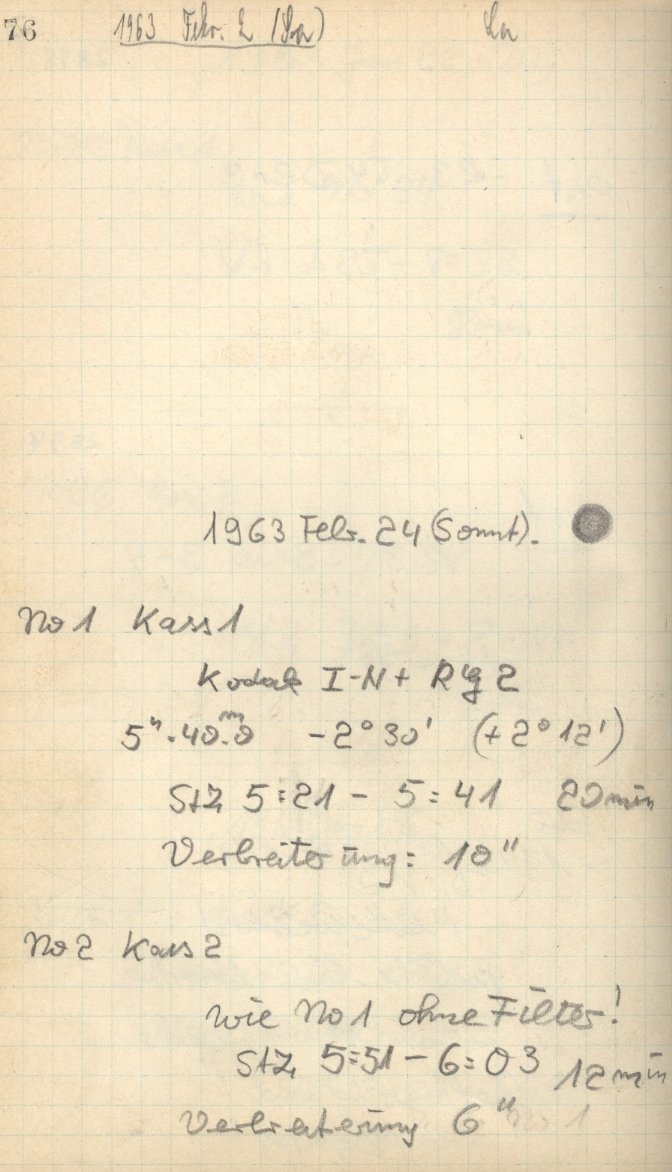 76 1963 Febr. 2 (Sa) La
1963 Febr. 24 (Sonnt).
No 1 Kass 1
Kodak I-N + RG 2
5ʰ.40.ᵐ0 -2°30' (+2°12')
StZ 5:21 - 5:41 20 min
Verbreiterung: 10"
No 2 Kass 2
wie No 1 ohne Filter!
StZ 5:51 - 6:03 12 min
Verbreiterung 6"